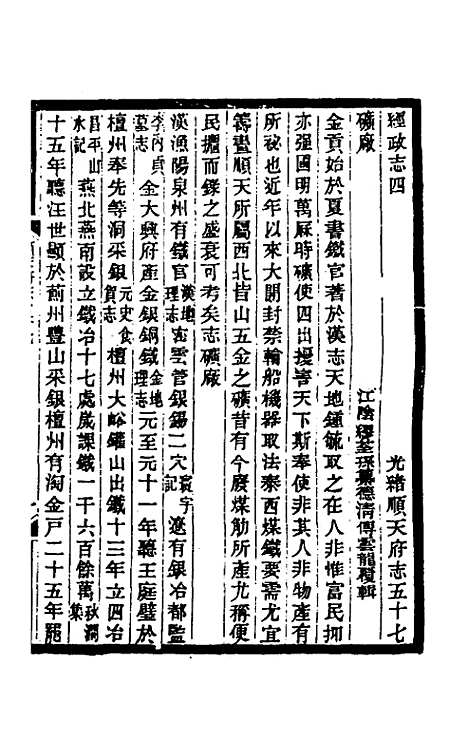 經政志四 光緒順天府志五十七
礦廠 江陰繆荃孫纂德清傅雲龍覆輯
金貢始於夏書鐵官著於漢志天地鍾毓取之在人非惟富民抑
亦强國明萬厤時礦使四出擾害天下斯奉使非其人非物產有
所祕也近年以來大開封禁輪船機器取法泰西煤鐵要需尤宜
籌畫順天所屬西北皆山五金之礦昔有今廢煤觔所產尤稱便
民擴而錄之盛衰可考矣志礦廠
漢漁陽泉州有鐵官漢地理志密雲管銀錫二穴寰宇記遼有銀冶都監
李內貞墓志金大興府產金銀銅鐵金地理志元至元十一年聽王庭璧於
檀州奉先等洞采銀元史食貨志檀州大峪錐山出鐵十三年立四冶
昌平山水記燕北燕南設立鐵冶十七處歲課鐵一千六百餘萬秋澗集
十五年聽汪世顯於薊州豐山采銀檀州有淘金戶二十五年罷